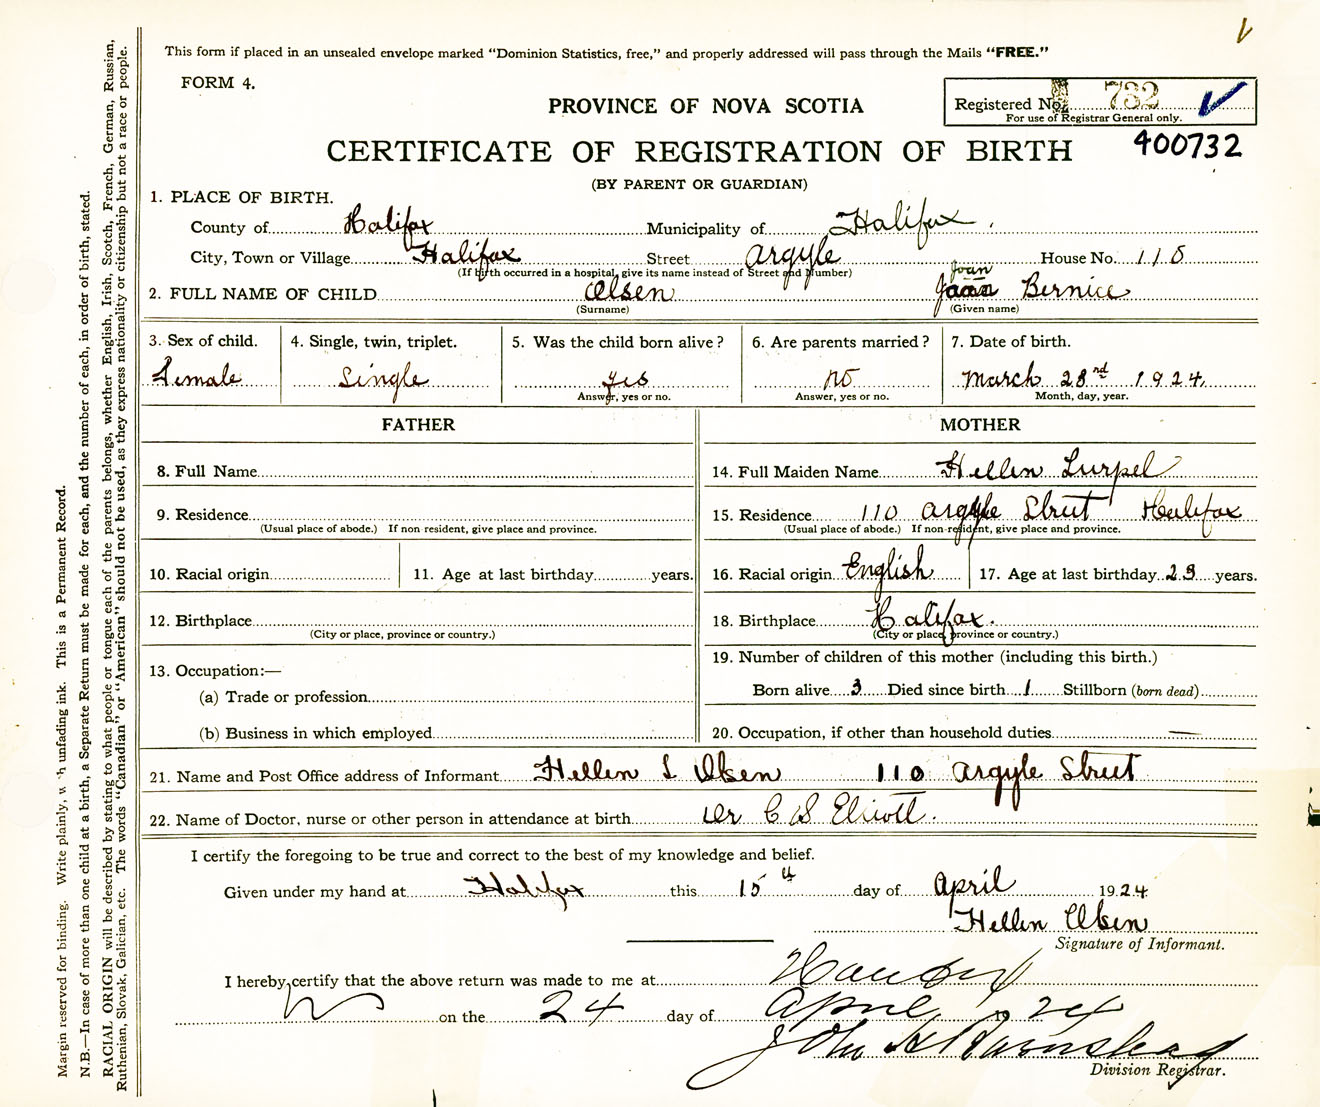 This form if placed in an unsealed envelope marked "Dominion Statistics, free," and properly addressed will pass through the Mails "FREE."
FORM 4.
PROVINCE OF NOVA SCOTIA
Registered No. 732
For use of Registrar General only.
CERTIFICATE OF REGISTRATION OF BIRTH
400732
(BY PARENT OR GUARDIAN)
1. PLACE OF BIRTH.
County of Halifax Municipality of Halifax.
City, Town or Village Halifax Street Argyle House No. 110
(If birth occurred in a hospital, give its name instead of Street and Number)
Joan
2. FULL NAME OF CHILD Olsen Bernice
(Surname) (Given name)
3. Sex of child. 4. Single, twin, triplet. 5. Was the child born alive? 6. Are parents married? 7. Date of birth.
Female Single yes no March 23rd 1924
Answer, yes or no. Answer, yes or no. Month, day, year.
FATHER MOTHER
8. Full Name 14. Full Maiden Name Hellen
9. Residence 15. Residence 110 Argyle Street Halifax
(Usual place of abode.) If non-resident, give place and province. (Usual place of abode.) If non-resident, give place and province.
10. Racial origin 11. Age at last birthday years. 16. Racial origin English 17. Age at last birthday 23 years.
12. Birthplace 18. Birthplace Halifax.
(City or place, province or country.) (City or place, province or country.)
13. Occupation:— 19. Number of children of this mother (including this birth.)
(a) Trade or profession Born alive 3 Died since birth 1 Stillborn (born dead)
(b) Business in which employed 20. Occupation, if other than household duties —
21. Name and Post Office address of Informant Hellen L Olsen 110 Argyle Street
22. Name of Doctor, nurse or other person in attendance at birth Dr C S Eliott.
I certify the foregoing to be true and correct to the best of my knowledge and belief.
Given under my hand at Halifax this 15th day of April 1924
Hellen Olsen
Signature of Informant.
I hereby certify that the above return was made to me at
on the 24 day of April 1924
John H Barnstead
Division Registrar.
Margin reserved for binding. Write plainly, with unfading ink. This is a Permanent Record.
N.B.—In case of more than one child at a birth, a Separate Return must be made for each, and the number of each, in order of birth, stated.
RACIAL ORIGIN will be described by stating to what people or tongue each of the parents belongs, whether English, Irish, Scotch, French, German, Russian,
Ruthenian, Slovak, Galician, etc. The words "Canadian" or "American" should not be used, as they express nationality or citizenship but not a race or people.